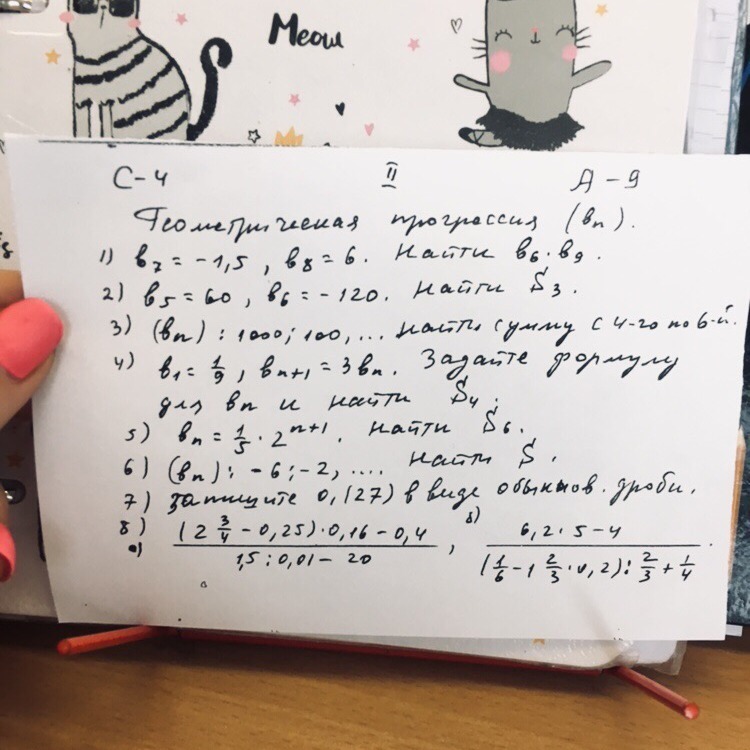 Meow
С-4 II А-9
Геометрическая прогрессия (bn).
1) b7 = -1,5, b8 = 6. Найти b6·b9.
2) b5 = 60, b6 = -120. Найти S3.
3) (bn): 1000; 100, ... Найти сумму с 4-го по 6-й.
4) b1 = 1/9, bn+1 = 3bn. Задайте формулу
для bn и найти S4.
5) bn = 1/5 · 2^n+1. Найти S6.
6) (bn): -6; -2, .... Найти S.
7) Запишите 0,(27) в виде обыкнов. дроби.
8) а) (2 3/4 - 0,25)·0,16 - 0,4 / 1,5 : 0,01 - 20 , б) 6,2·5 - 4 / (1/6 - 1 2/3 · 0,2) : 2/3 + 1/4 .